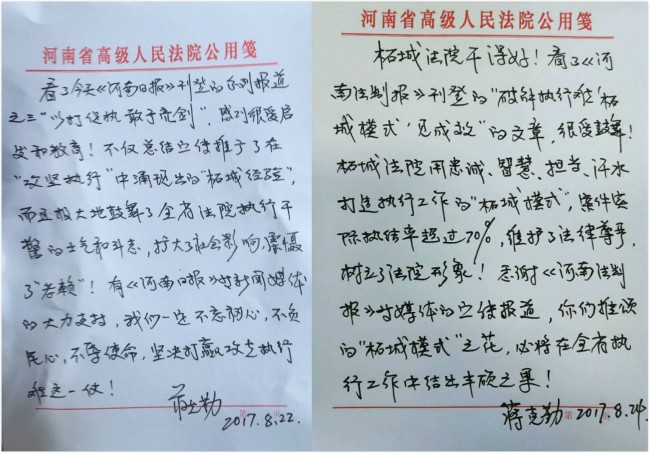 河南省高级人民法院公用笺
看了今天《河南日报》刊登的系列报道
之三"以打促执 敢于亮剑",感到很受启
发和教育!不仅总结宣传推广了在
"攻坚执行"中涌现出的"柘城经验",
而且极大地鼓舞了全省法院执行干
警的士气和斗志,扩大了社会影响,震慑
了"老赖"!有《河南日报》等新闻媒体
的大力支持,我们一定不忘初心,不负
民心,不辱使命,坚决打赢攻克执行
难这一仗!
蒋克勤
2017.8.22.
河南省高级人民法院公用笺
柘城法院干得好!看了《河
南法制报》刊登的"破解执行难'柘
城模式'见成效"的文章,很受鼓舞!
柘城法院用忠诚、智慧、担当、汗水
打造执行工作的"柘城模式",案件实
际执结率超过70%,维护了法律尊严,
树立了法院形象!感谢《河南法制
报》等媒体的宣传报道,你们推颂
的"柘城模式"之花,必将在全省执
行工作中结出丰硕之果!
蒋克勤 第 2017.8.24.